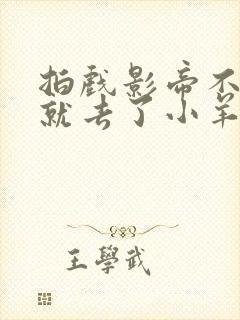 拍戏影帝不
就去了小羊
王學武